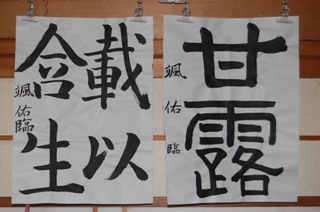 甘露
颯佑臨
載以
含生
颯佑臨